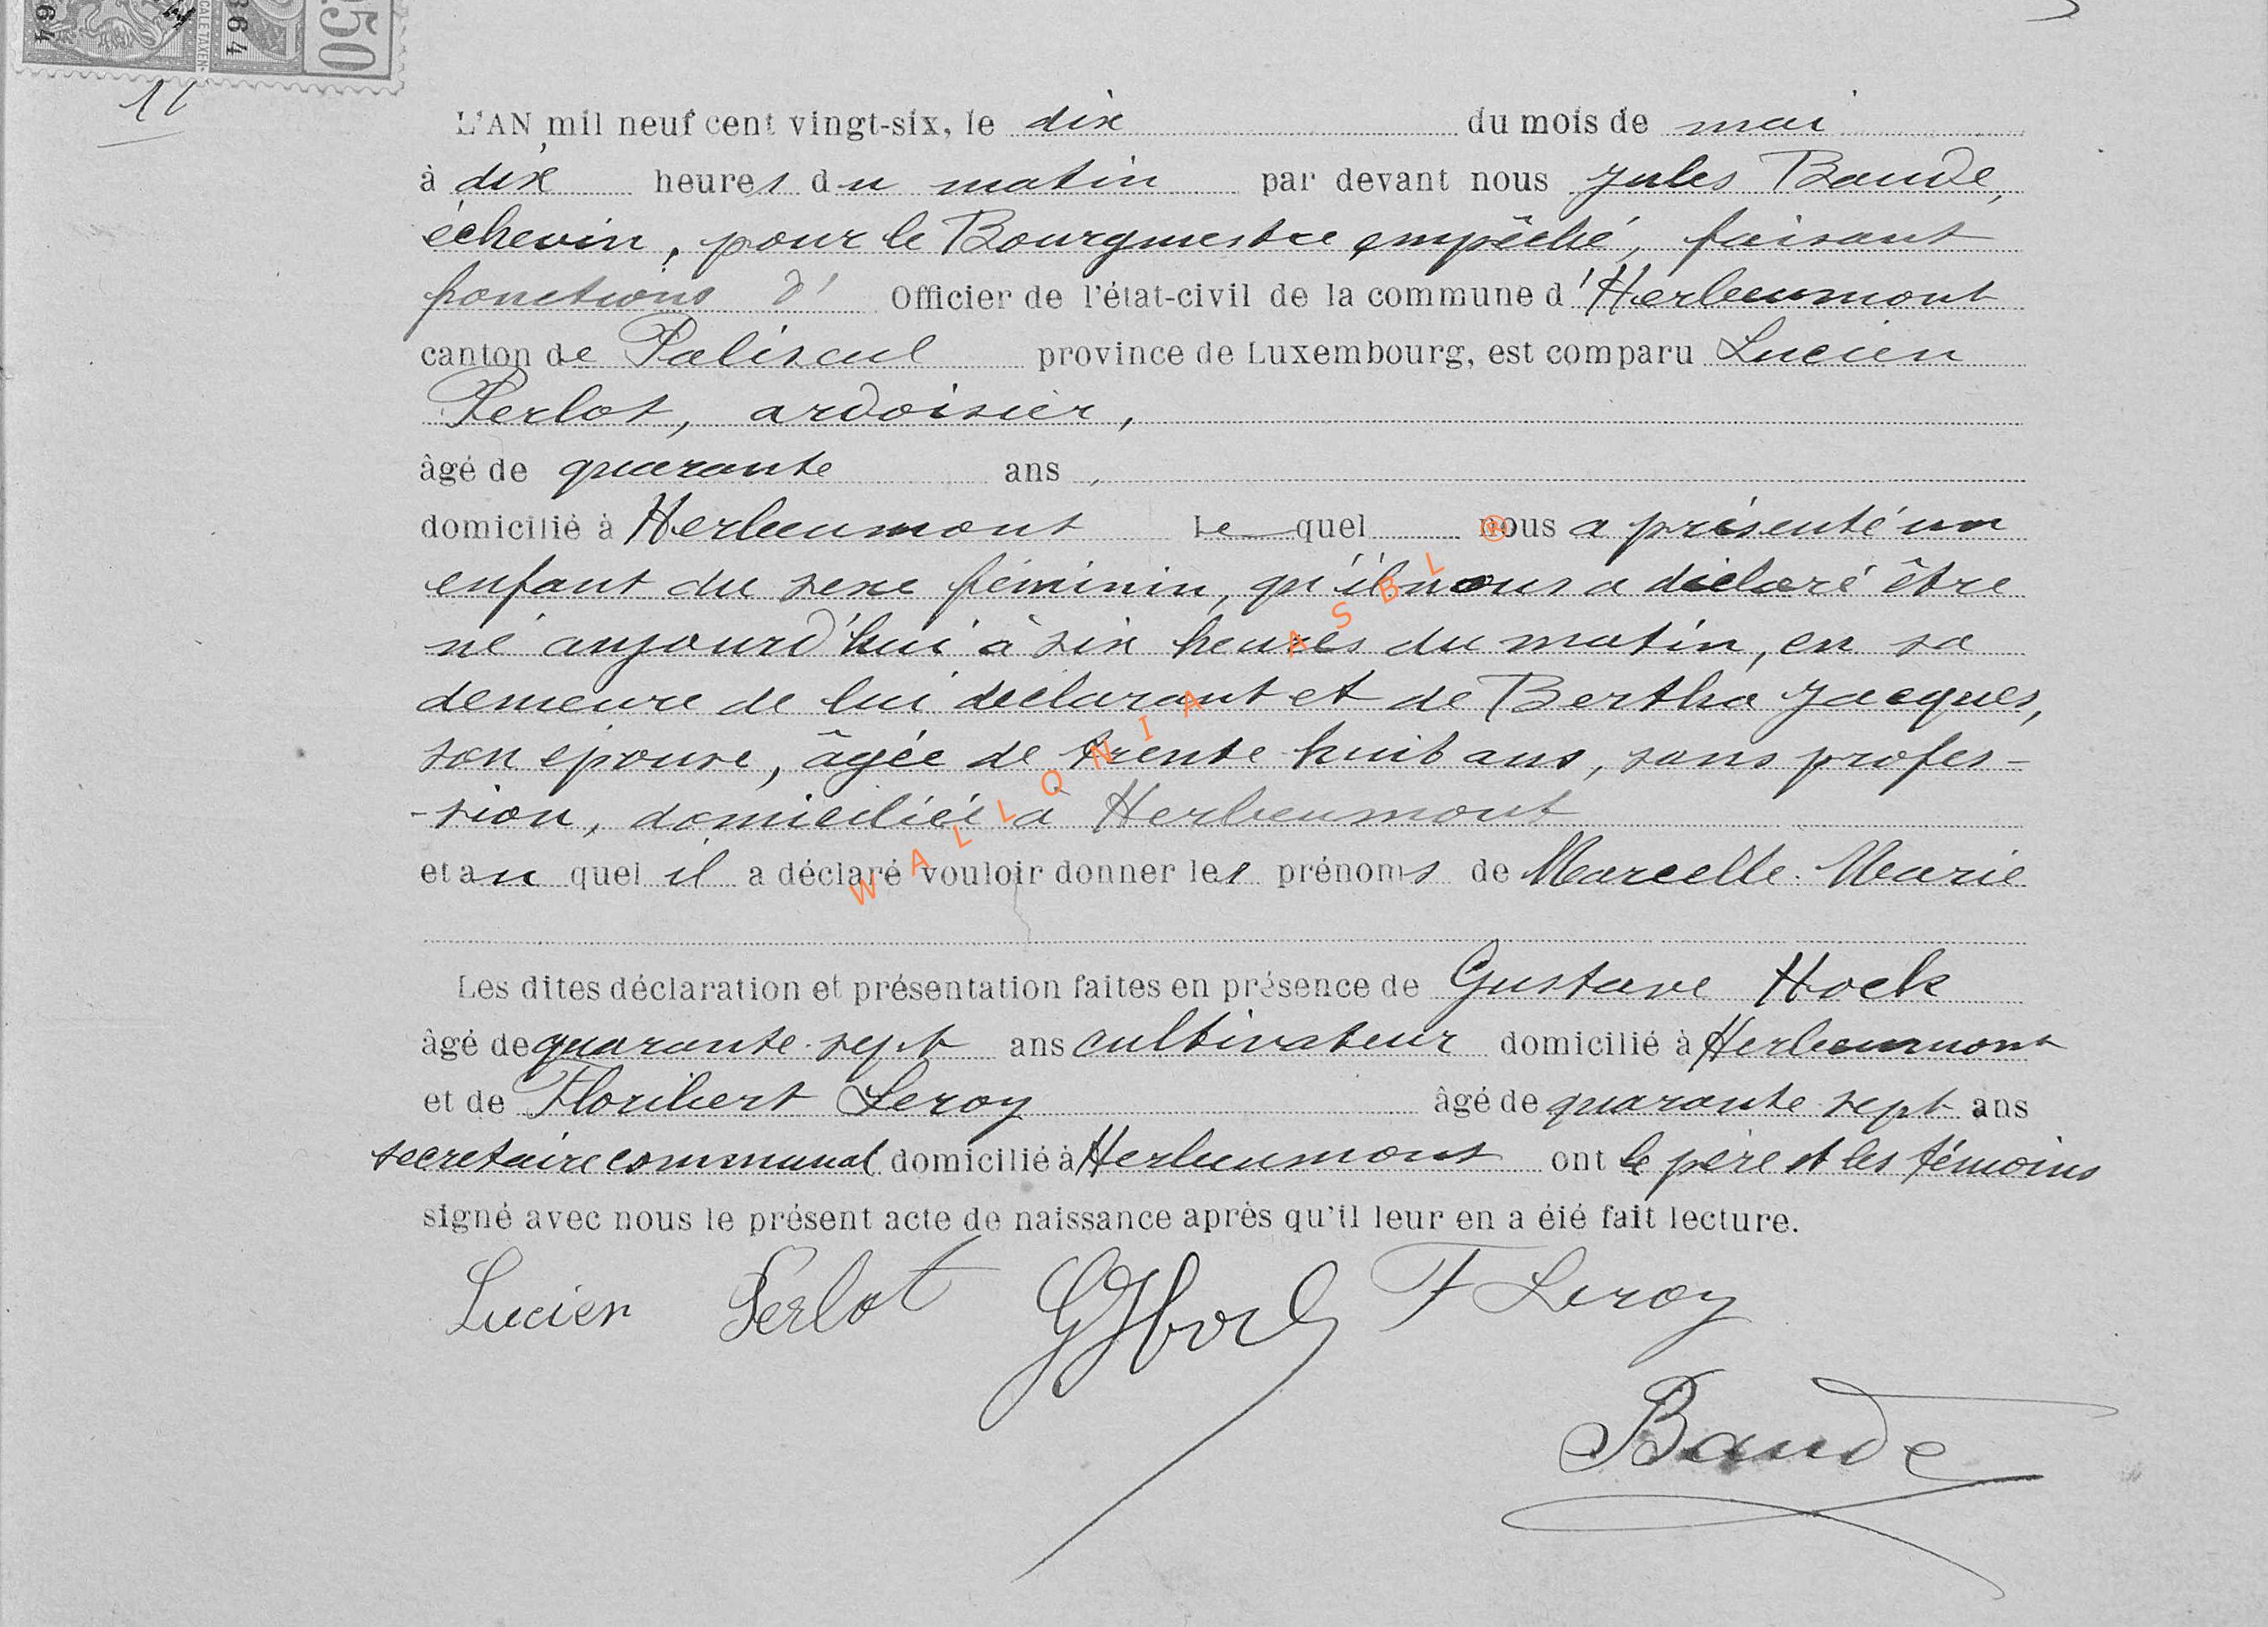 50
364
94
CALE TAXEN
L'AN mil neuf cent vingt-six, le dix du mois de mai
à dix heures du matin par devant nous Jules Baude,
échevin, pour le Bourgmestre empêché, faisant
fonctions d' Officier de l'état-civil de la commune d'Herbeumont
canton de Paliseul province de Luxembourg, est comparu Lucien
Perlot, ardoisier,
âgé de quarante ans,
domicilié à Herbeumont Lequel nous a présenté un
enfant du sexe féminin, qu'il nous a déclaré être
né aujourd'hui à six heures du matin, en sa
demeure de lui déclarant et de Bertha Jacques,
son épouse, âgée de trente huit ans, sans profes-
-sion, domiciliés à Herbeumont
et au quel il a déclaré vouloir donner les prénoms de Marcelle-Marie
Les dites déclaration et présentation faites en présence de Gustave Hock
âgé de quarante-sept ans cultivateur domicilié à Herbeumont
et de Floribert Leroy âgé de quarante-sept ans
secretaire communal domicilié à Herbeumont ont le père et les témoins
signé avec nous le présent acte de naissance après qu'il leur en a été fait lecture.
Lucien Perlot GHock F Leroy
Baude
WALLONIA ASBL ®